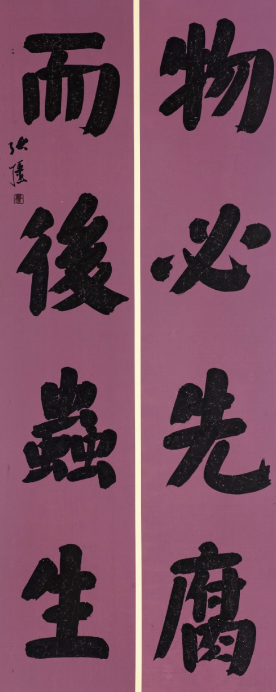 物必先腐
而後蟲生